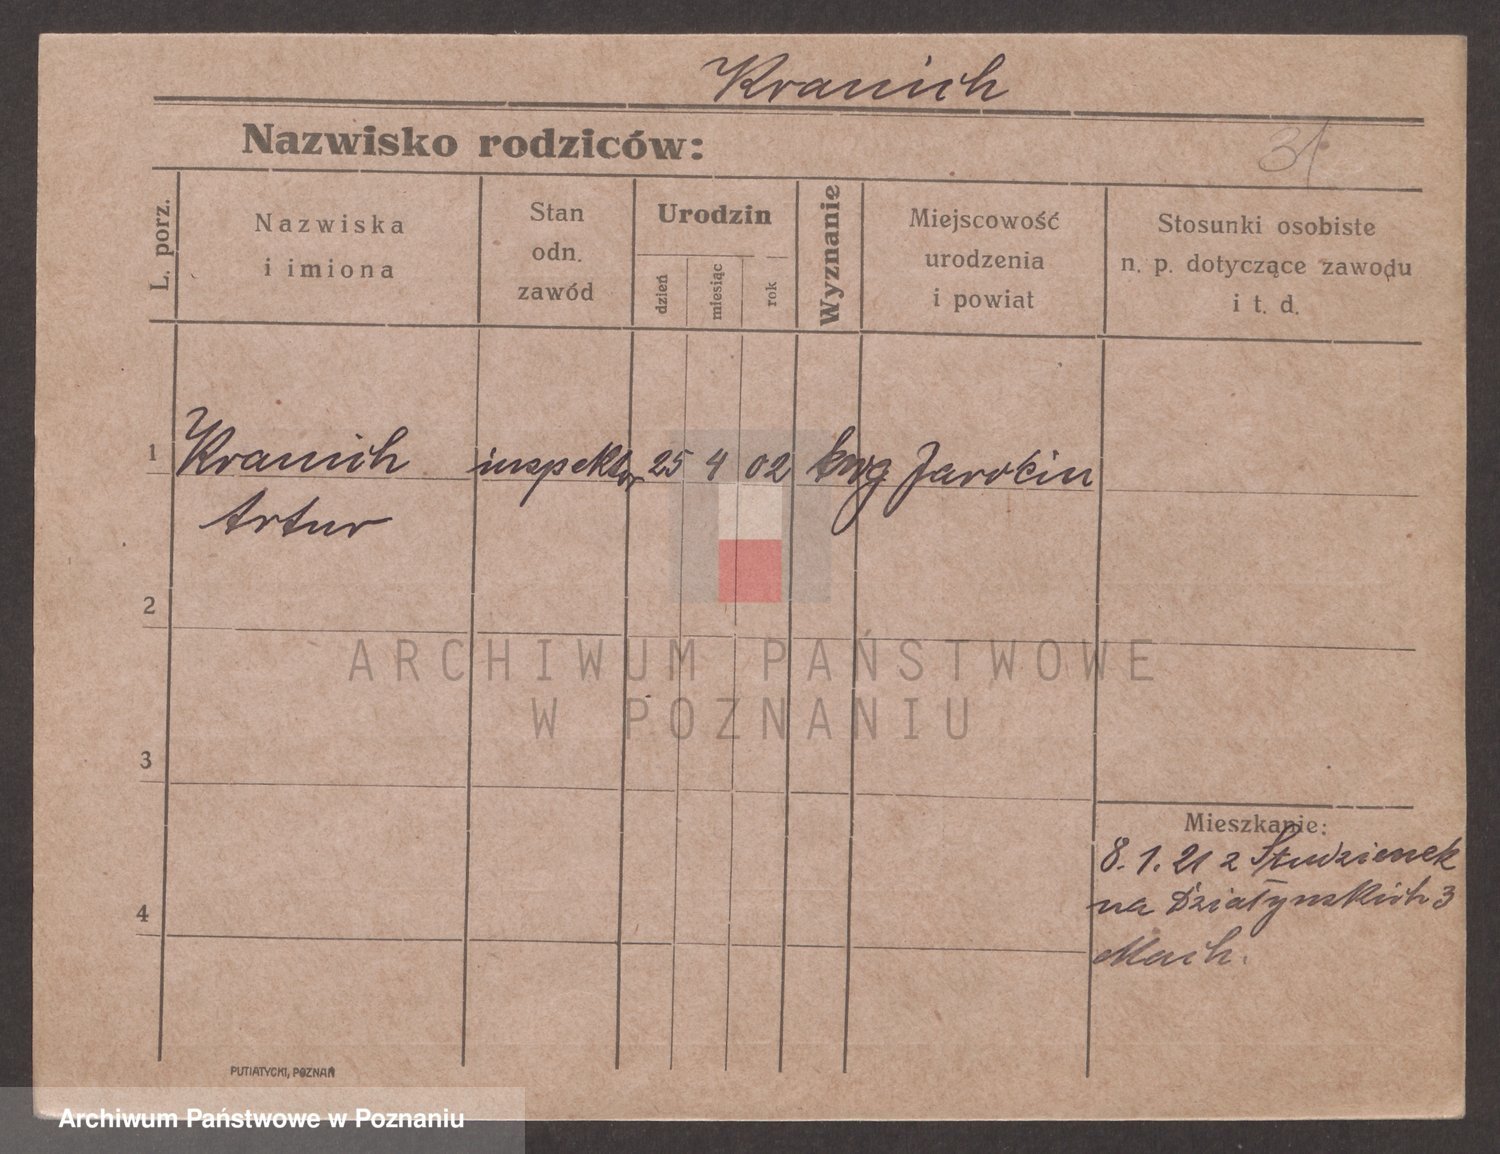 Kranich
Nazwisko rodziców:
31
L. porz.
Nazwiska
i imiona
Stan
odn.
zawód
Urodzin
dzień
miesiąc
rok
Wyznanie
Miejscowość
urodzenia
i powiat
Stosunki osobiste
n. p. dotyczące zawodu
i t. d.
1 Kranich inspektor 25 4 02 Jarocin
Artur
2
3
4
Mieszkanie:
8. 1. 21 z Studzienek
na Działynskich 3
PUTIATYCKI, POZNAŃ
ARCHIWUM PAŃSTWOWE
W POZNANIU
Archiwum Państwowe w Poznaniu